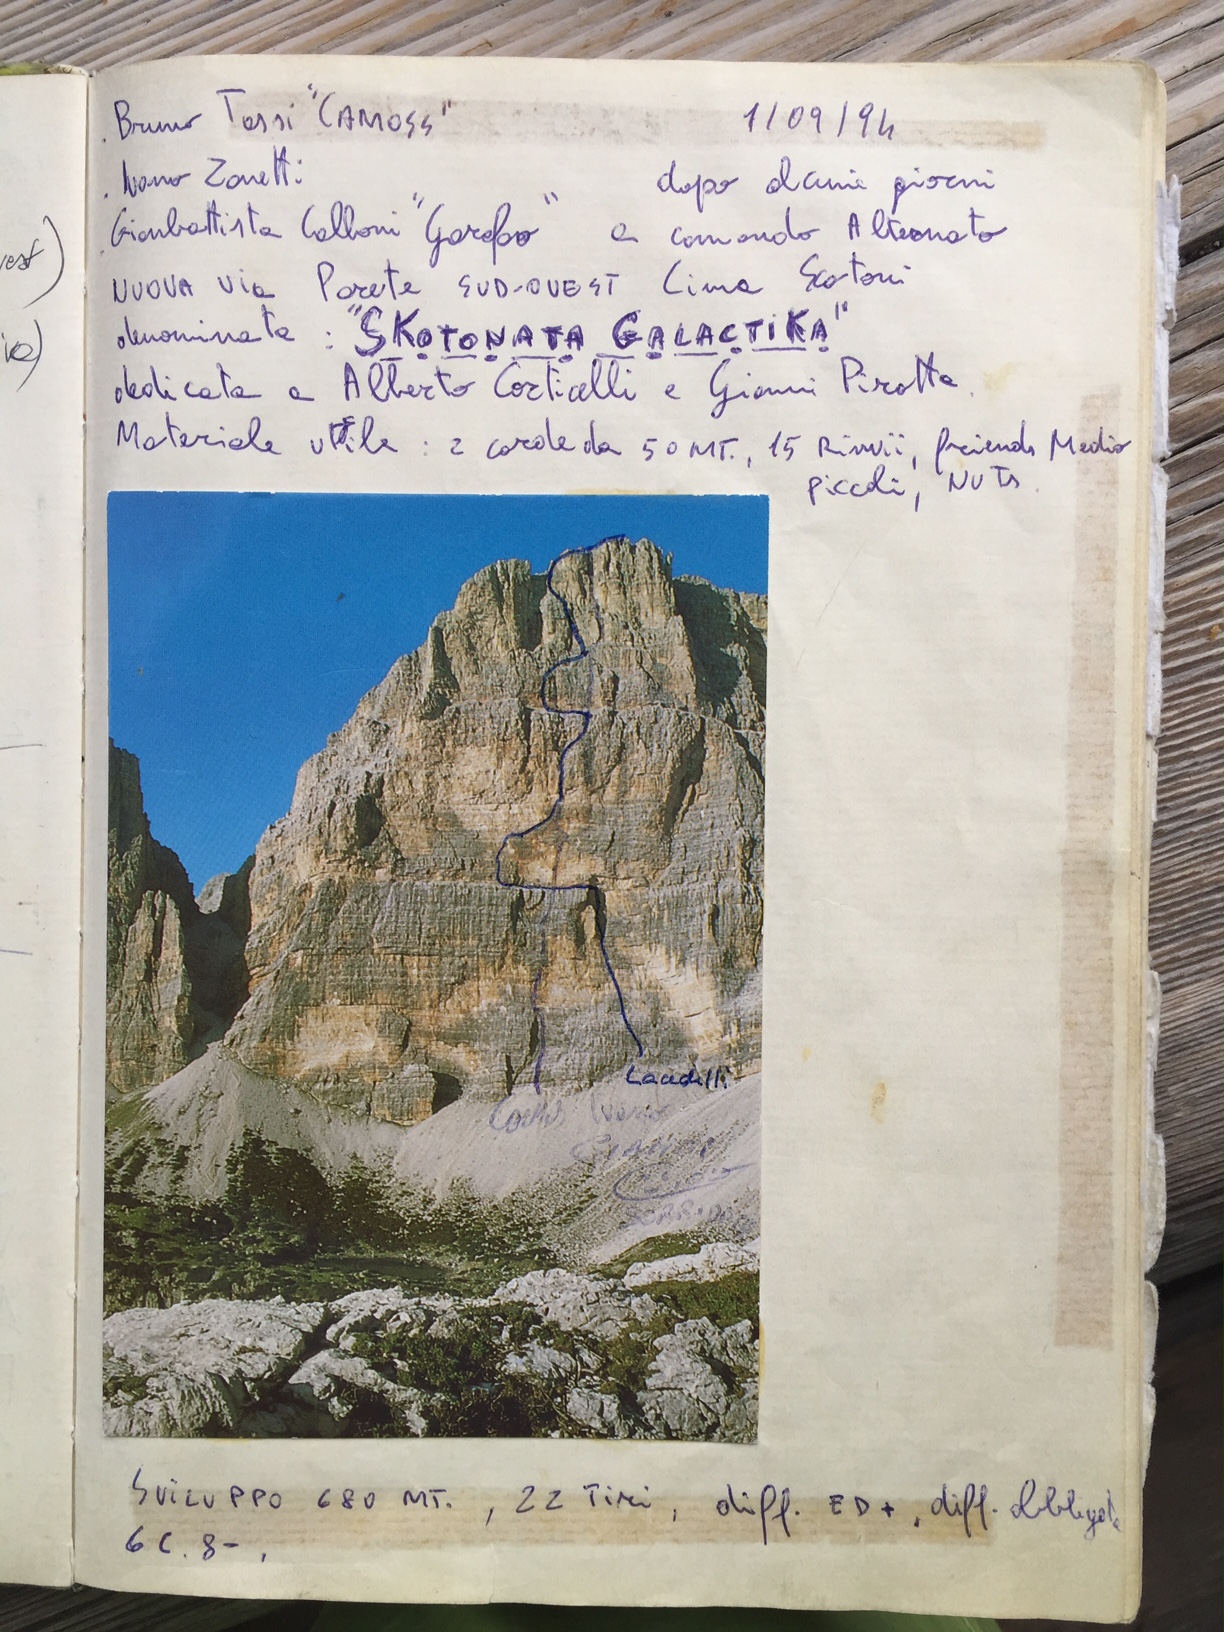 Bruno Tassi "CAMOSS" 1/09/94
Ivano Zanetti dopo alcuni giorni
Gianbattista Calloni "Garepo" a comando Alternato
NUOVA via Parete SUD-OVEST Cima Scotoni
denominata : "SKOTONATA GALACTIKA"
dedicata a Alberto Corticelli e Gianni Pirotta.
Materiale utile : 2 corde da 50 MT., 15 Rinvii, friends Medio
piccoli, NUTs.
Lacedelli
SVILUPPO 680 MT., 22 Tiri, diff. ED+, diff. obbligata
6C. 8-,